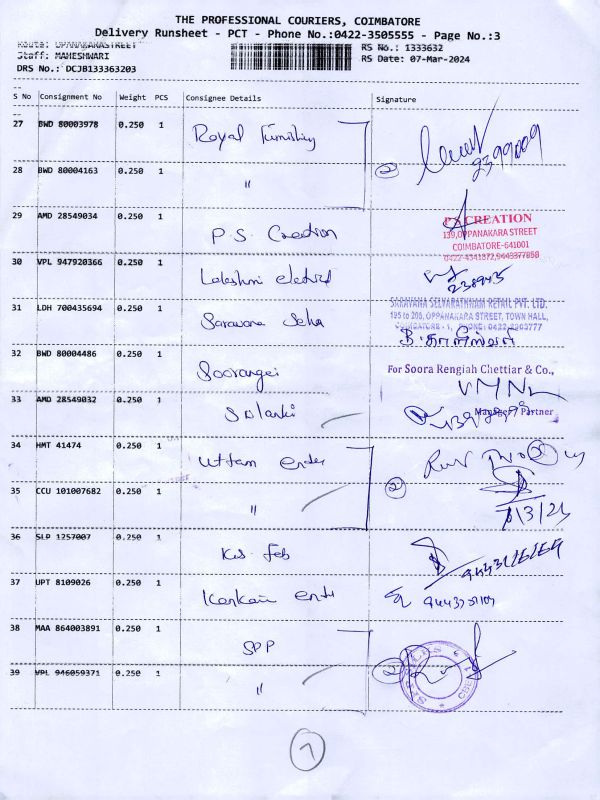 THE PROFESSIONAL COURIERS, COIMBATORE
Delivery Runsheet - PCT - Phone No.:0422-3505555 - Page No.:3
Route: OPPANAKARASTREET
RS No.: 1333632
Staff: MAHESHWARI
RS Date: 07-Mar-2024
DRS No.: DCJB133363203
S No Consignment No Weight PCS Consignee Details Signature
27 BWD 80003978 0.250 1 Royal Furnishing
28 BWD 80004163 0.250 1 " 2
29 AMD 28549034 0.250 1 P.S. Creation
P.S CREATION
139,OPPANAKARA STREET
COIMBATORE-641001
0422-4341372,9443377858
30 VPL 947920366 0.250 1 Lakshmi
31 LDH 700435694 0.250 1 Sarawana Selva
SARAVANA SELVARATHNAM RETAIL PVT. LTD.
195 to 206, OPPANAKARA STREET, TOWN HALL,
COIMBATORE - 1, PHONE: 0422-2303777
32 BWD 80004486 0.250 1 Soorangei
For Soora Rengiah Chettiar & Co.,
33 AMD 28549032 0.250 1 Solanki
Manager / Partner
34 HMT 41474 0.250 1 Uttam Enter
35 CCU 101007682 0.250 1 " 2
7/3/24
36 SLP 1257007 0.250 1
37 UPT 8109026 0.250 1
38 MAA 864003891 0.250 1 SPP
39 VPL 946059371 0.250 1 " 2
7